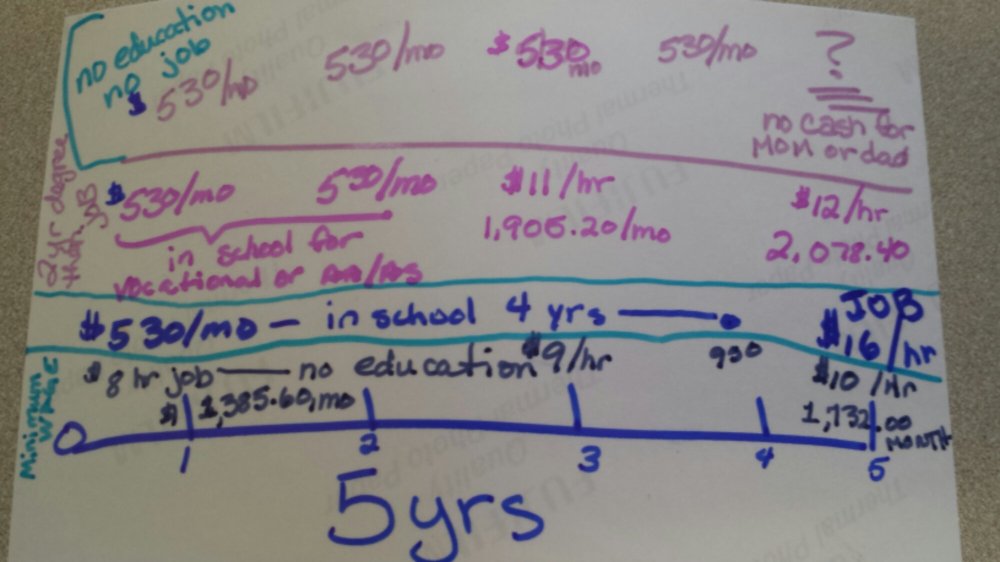 no education
no job
$530/mo 530/mo $530 mo 530/mo ?
no cash for
MOM or dad
2yr degree
than JOB
$530/mo 530/mo $11/hr $12/hr
1,905.20/mo 2,078.40
in school for
vocational or
$530/mo — in school 4 yrs JOB
$16/hr
Minimum
WAGE
$8 hr job — no education $9/hr 950 $10/Hr
1,385.60/mo 1,732.00
MONTH
0 1 2 3 4 5
5yrs